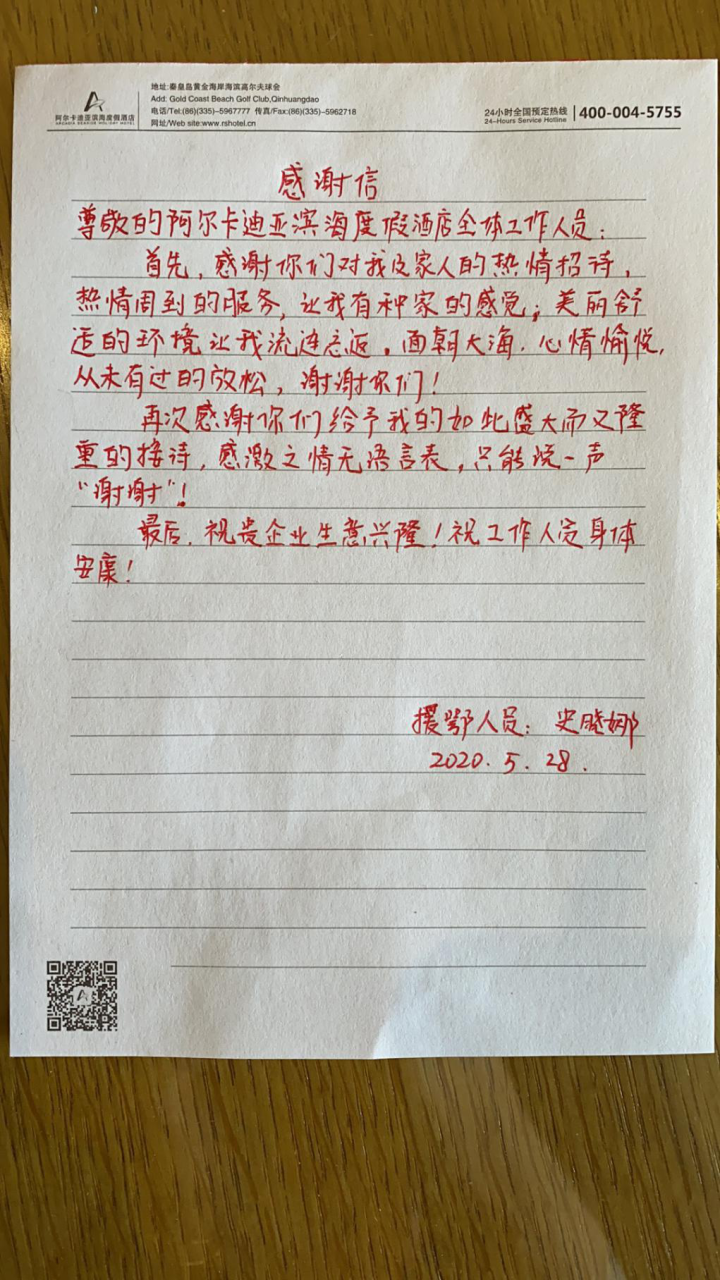 阿尔卡迪亚滨海度假酒店
ARCADIA SEASIDE HOLIDAY HOTEL
地址:秦皇岛黄金海岸海滨高尔夫球会
Add: Gold Coast Beach Golf Club,Qinhuangdao
电话/Tel:(86)(335)–5967777 传真/Fax:(86)(335)–5962718
网址/Web site:www.rshotel.cn
24小时全国预定热线
24–Hours Service Hotline
400-004-5755
感谢信
尊敬的阿尔卡迪亚滨海度假酒店全体工作人员:
首先,感谢你们对我及家人的热情招待,
热情周到的服务,让我有种家的感觉;美丽舒
适的环境让我流连忘返。面朝大海.心情愉悦,
从未有过的放松,谢谢你们!
再次感谢你们给予我的如此盛大而又隆
重的接待,感激之情无语言表,只能说一声
“谢谢”!
最后,祝贵企业生意兴隆!祝工作人员身体
安康!
援鄂人员:史晓娜
2020.5.28.